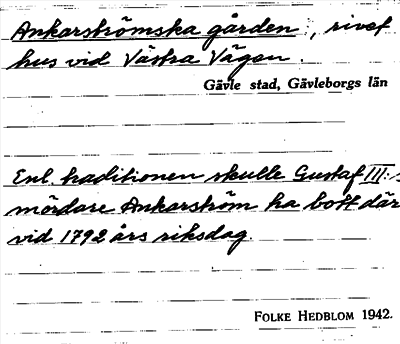 Ankarströmska gården, rivet
hus vid Västra Vägen.
Gävle stad, Gävleborgs län
Enl. traditionen skulle Gustaf III:s
mördare Ankarström ha bott där
vid 1792 års riksdag.
FOLKE HEDBLOM 1942.